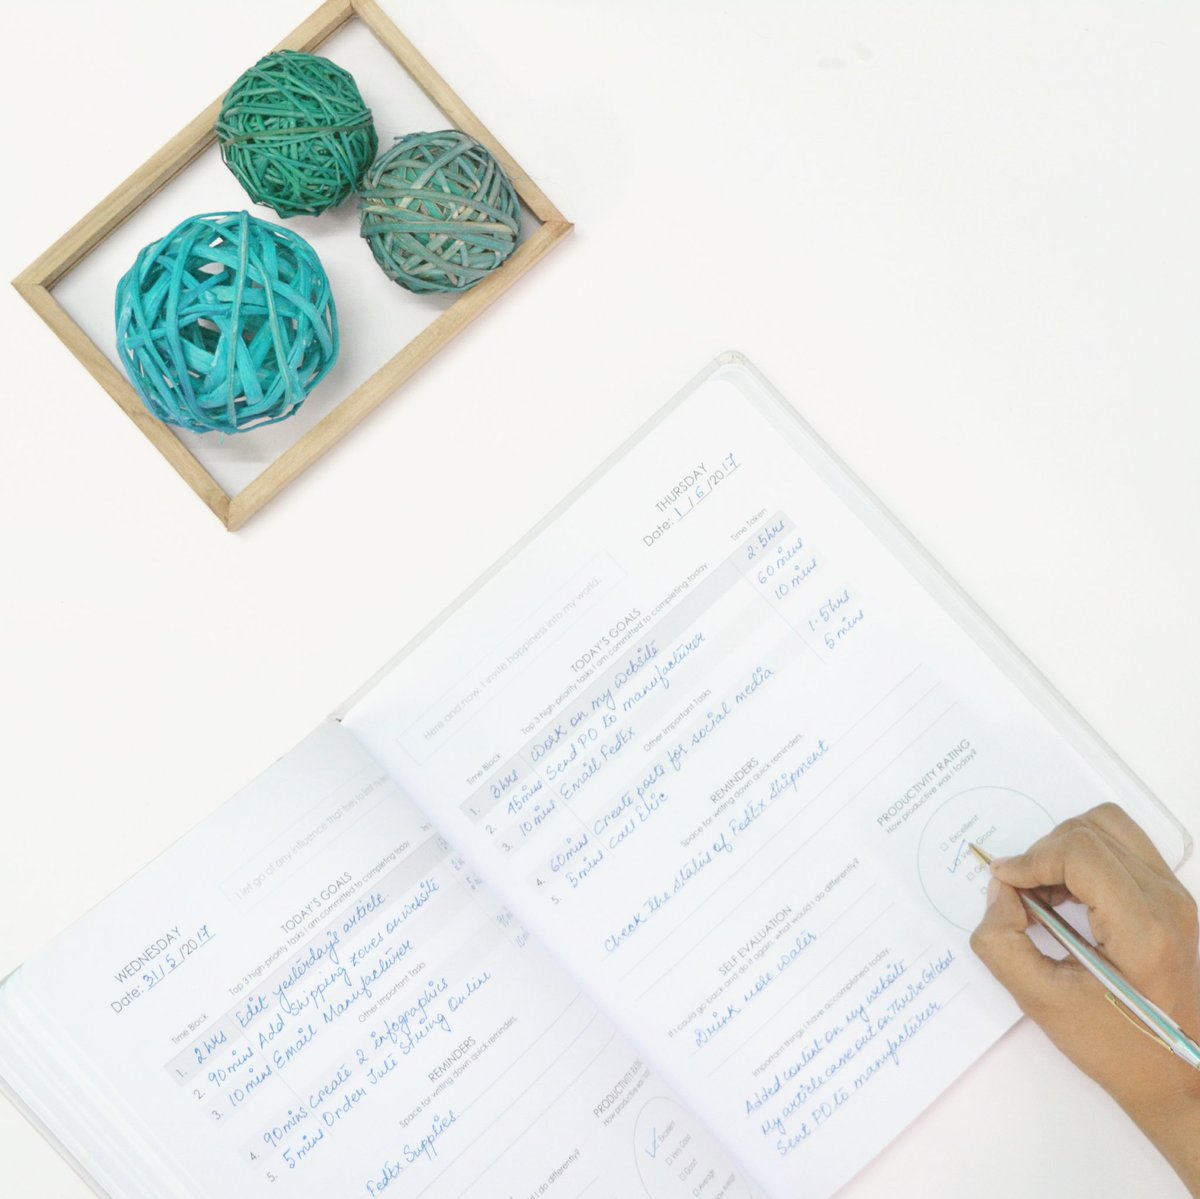 WEDNESDAY
Date: 31/5/2017
I let go of any influence that
TODAY'S GOALS
Top 3 high-priority tasks I am committed to completing today
Time Block
1. 2 hrs Edit yesterday's article.
2. 90 mins Add Shipping zones on website
3. 10 mins Email Manufacturer
Other Important Tasks
4. 90 mins Create 2 infographics
5. 5 mins Order Jute String Online
REMINDERS
Space for writing down quick reminders.
FedEx Supplies
PRODUCTIVITY
How productive was
Excellent
Very Good
Good
Average
do it differently?
THURSDAY
Date: 1/6/2017
Here and now, I invite happiness into my world.
TODAY'S GOALS
Top 3 high-priority tasks I am committed to completing today
Time Block Time Taken
1. 3 hrs Work on my website 2.5 hrs
2. 45 mins Send PO to manufacturer 60 mins
3. 10 mins Email FedEx 10 mins
Other Important Tasks
4. 60 mins Create posts for social media 1.5 hrs
5. 5 mins Call Eric 5 mins
REMINDERS
Space for writing down quick reminders.
Check the status of FedEx Shipment
PRODUCTIVITY RATING
How productive was I today?
Excellent
Good
SELF EVALUATION
If I could go back and do it again, what would I do differently?
Drink more water
Important things I have accomplished today.
Added content on my website
My article came out on Thrive Global
Sent PO to manufacturer